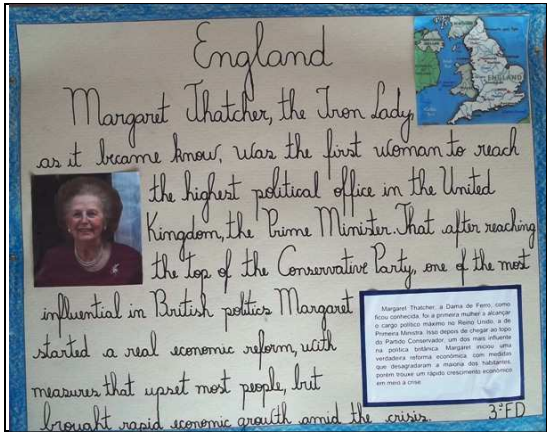 England
ENGLAND
Margaret Thatcher, the Iron Lady,
as it became know, was the first woman to reach
the highest political office in the United
Kingdom, the Prime Minister. That after reaching
the top of the Conservative Party, one of the most
influential in British politics Margaret
started a real economic reform, with
measures that upset most people, but
brought rapid economic growth amid the crisis.
Margaret Thatcher, a Dama de Ferro, como
ficou conhecida, foi a primeira mulher a alcançar
o cargo político máximo no Reino Unido, a de
Primeira Ministra. Isso depois de chegar ao topo
do Partido Conservador, um dos mais influente
na política britânica. Margaret iniciou uma
verdadeira reforma econômica, com medidas
que desagradaram a maioria dos habitantes,
porém trouxe um rápido crescimento econômico
em meio à crise.
3ºFD